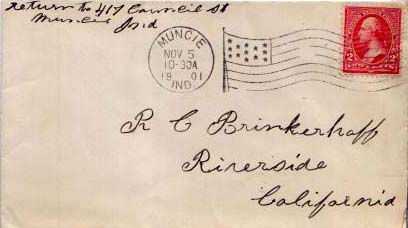 return to 417 Council St
Muncie Ind
MUNCIE
NOV 5
10-30A
19 01
IND.
2 2
R C Brinkerhoff
Riverside
California